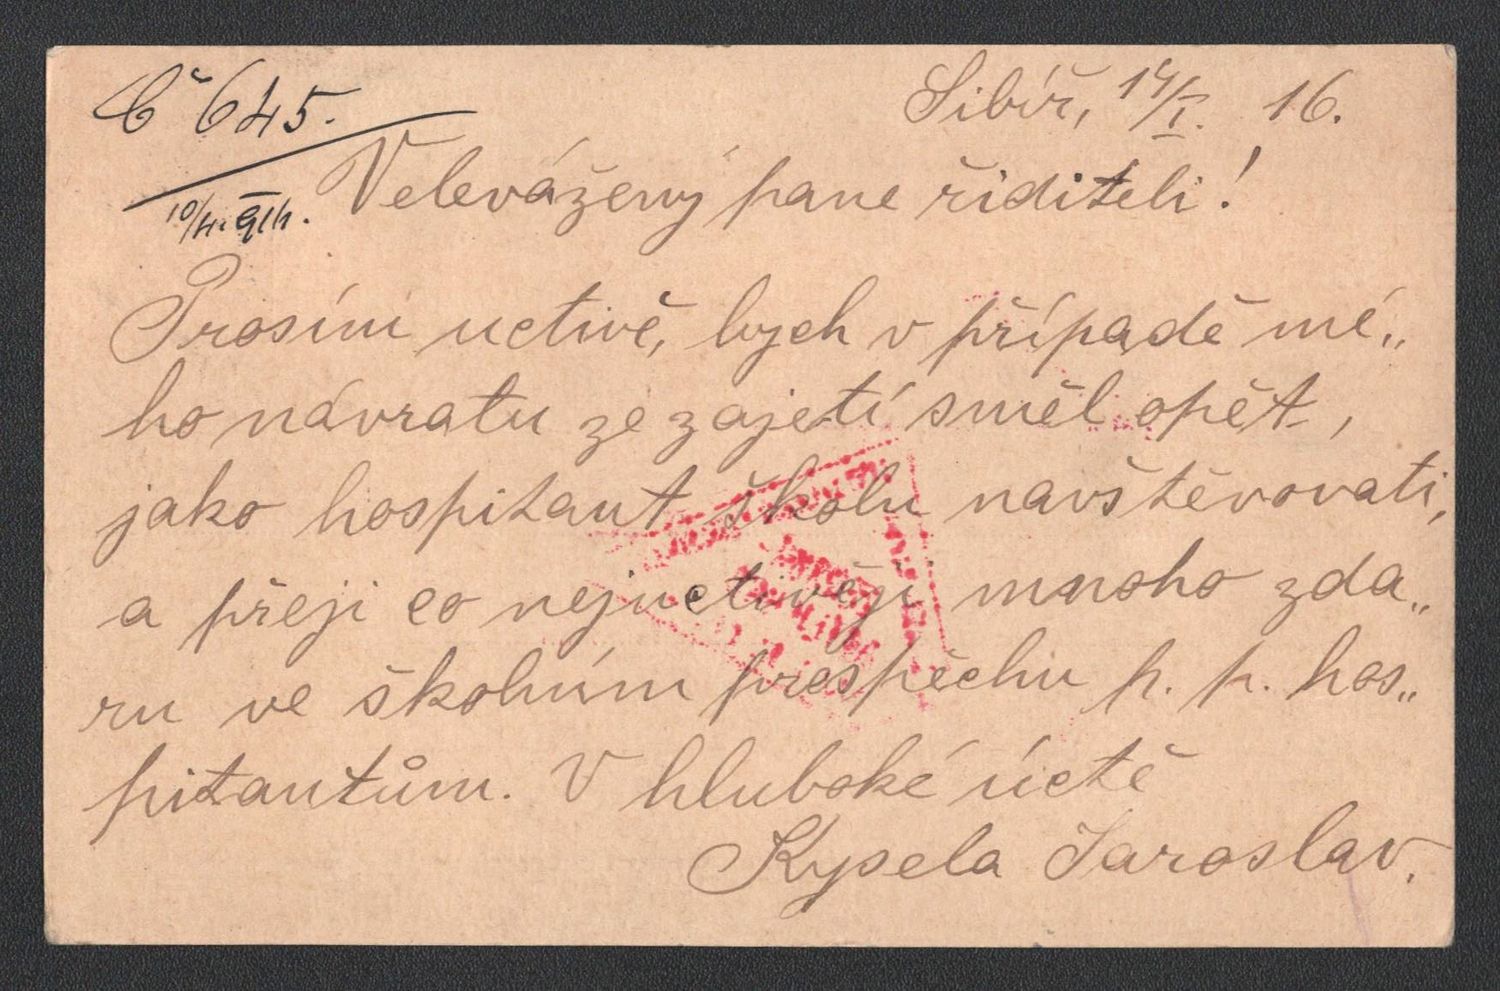 Č 645.
Sibiř, 14/I. 16.
Velevážený pane řiditeli!
Prosím uctivě, bych v případě mé„
ho návratu ze zajetí směl opět,
jako hospitant školu navštěvovati,
a přeji co nejuctivěji mnoho zda„
ru ve školním prospěchu p. p. hos„
pitantům. V hluboké úctě
Kysela Jaroslav.